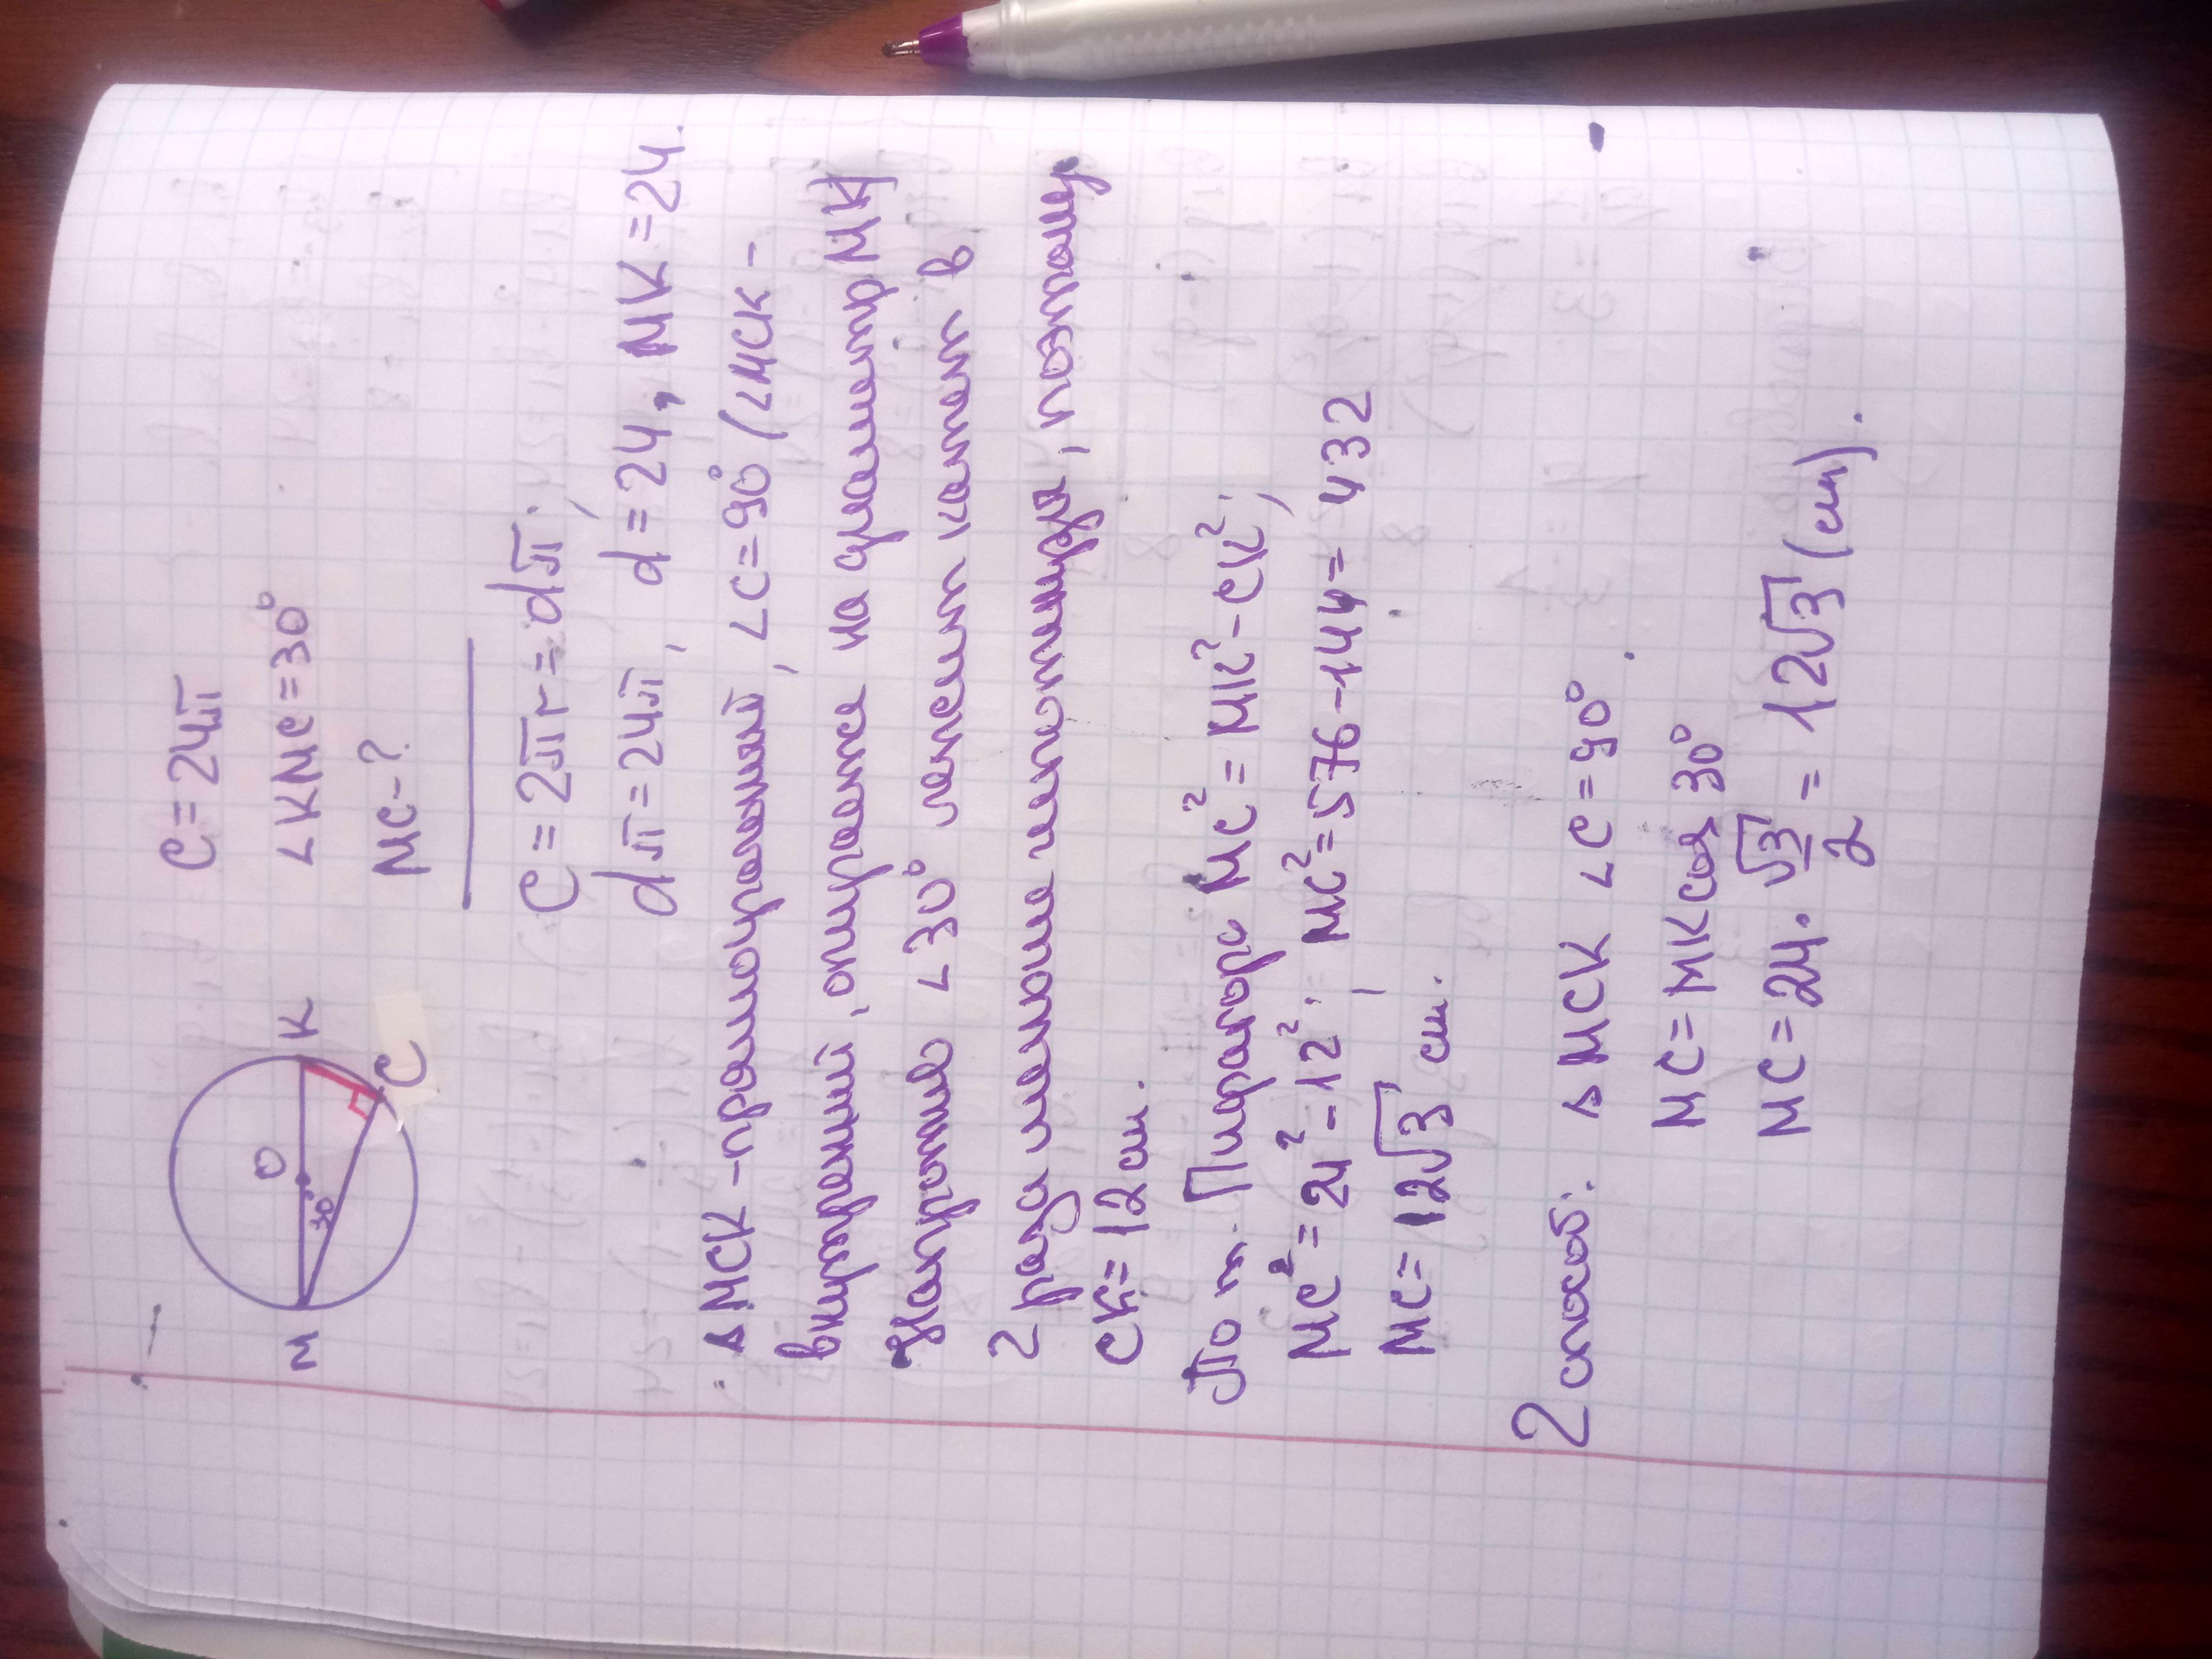 C = 24π
∠KMC = 30°
MC - ?
M
O
K
30°
C
C = 2πr = dπ;
dπ = 24π, d = 24, MK = 24.
△MCK - прямоугольный, ∠C = 90° (∠MCK -
внутренний, опирался на диаметр MK)
Напротив ∠30° лежит катет в
2 раза меньше гипотенузы, поэтому
CK = 12 см.
По т. Пифагора MC² = MK² - CK²;
MC² = 24² - 12²; MC² = 576 - 144 = 432
MC = 12√3 см.
2 способ: △MCK ∠C = 90°
MC = MK cos 30°
MC = 24 · √3/2 = 12√3 (см).